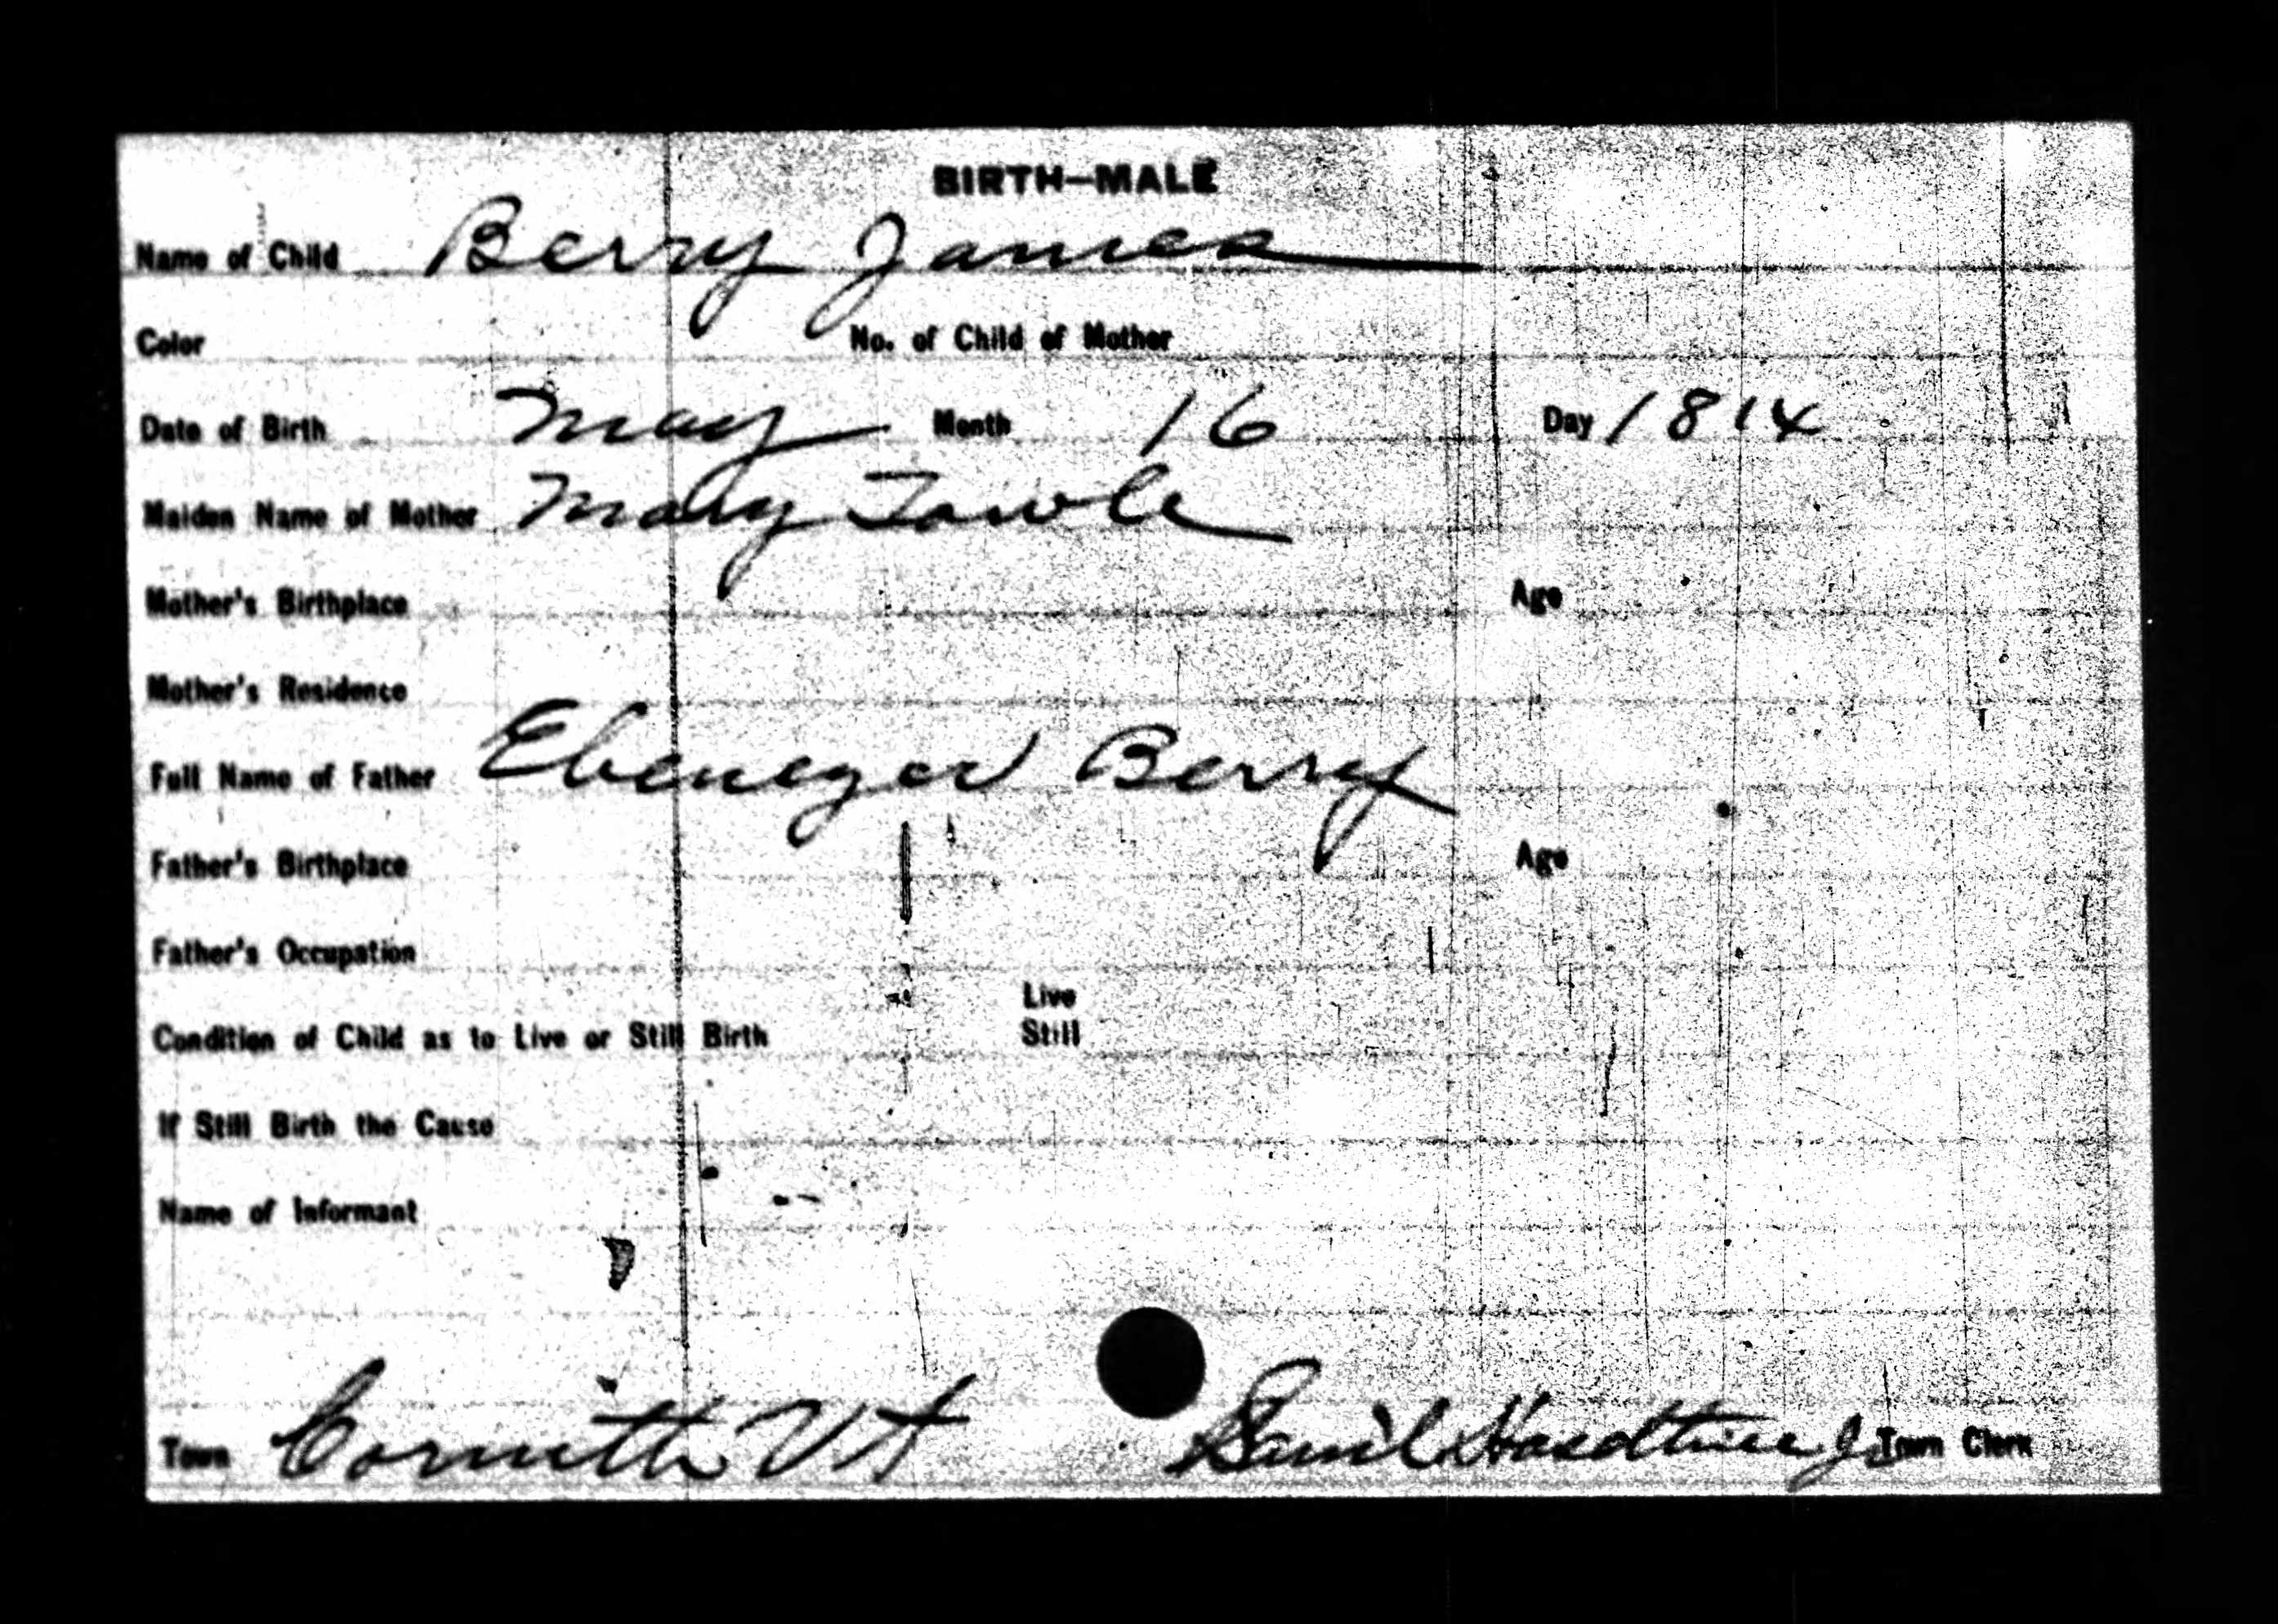 BIRTH—MALE
Name of Child Berry James
Color No. of Child of Mother
Date of Birth May Month 16 Day 1814
Maiden Name of Mother Mary Towle
Mother's Birthplace Age
Mother's Residence
Full Name of Father Ebenezer Berry
Father's Birthplace Age
Father's Occupation
Live
Condition of Child as to Live or Still Birth Still
If Still Birth the Cause
Name of Informant
Town Corinth Vt Town Clerk